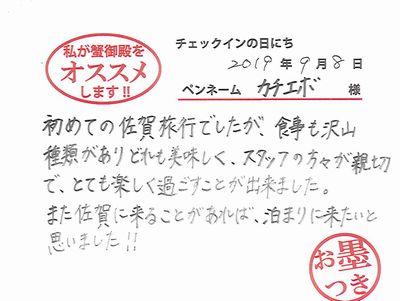 私が蟹御殿を
オススメ
します!!
チェックインの日にち
2019年9月8日
ペンネーム カチエボ 様
初めての佐賀旅行でしたが、食事も沢山
種類がありどれも美味しく、スタッフの方々が親切
で、とても楽しく過ごすことが出来ました。
また佐賀に来ることがあれば、泊まりに来たいと
思いました!!
お墨
つき